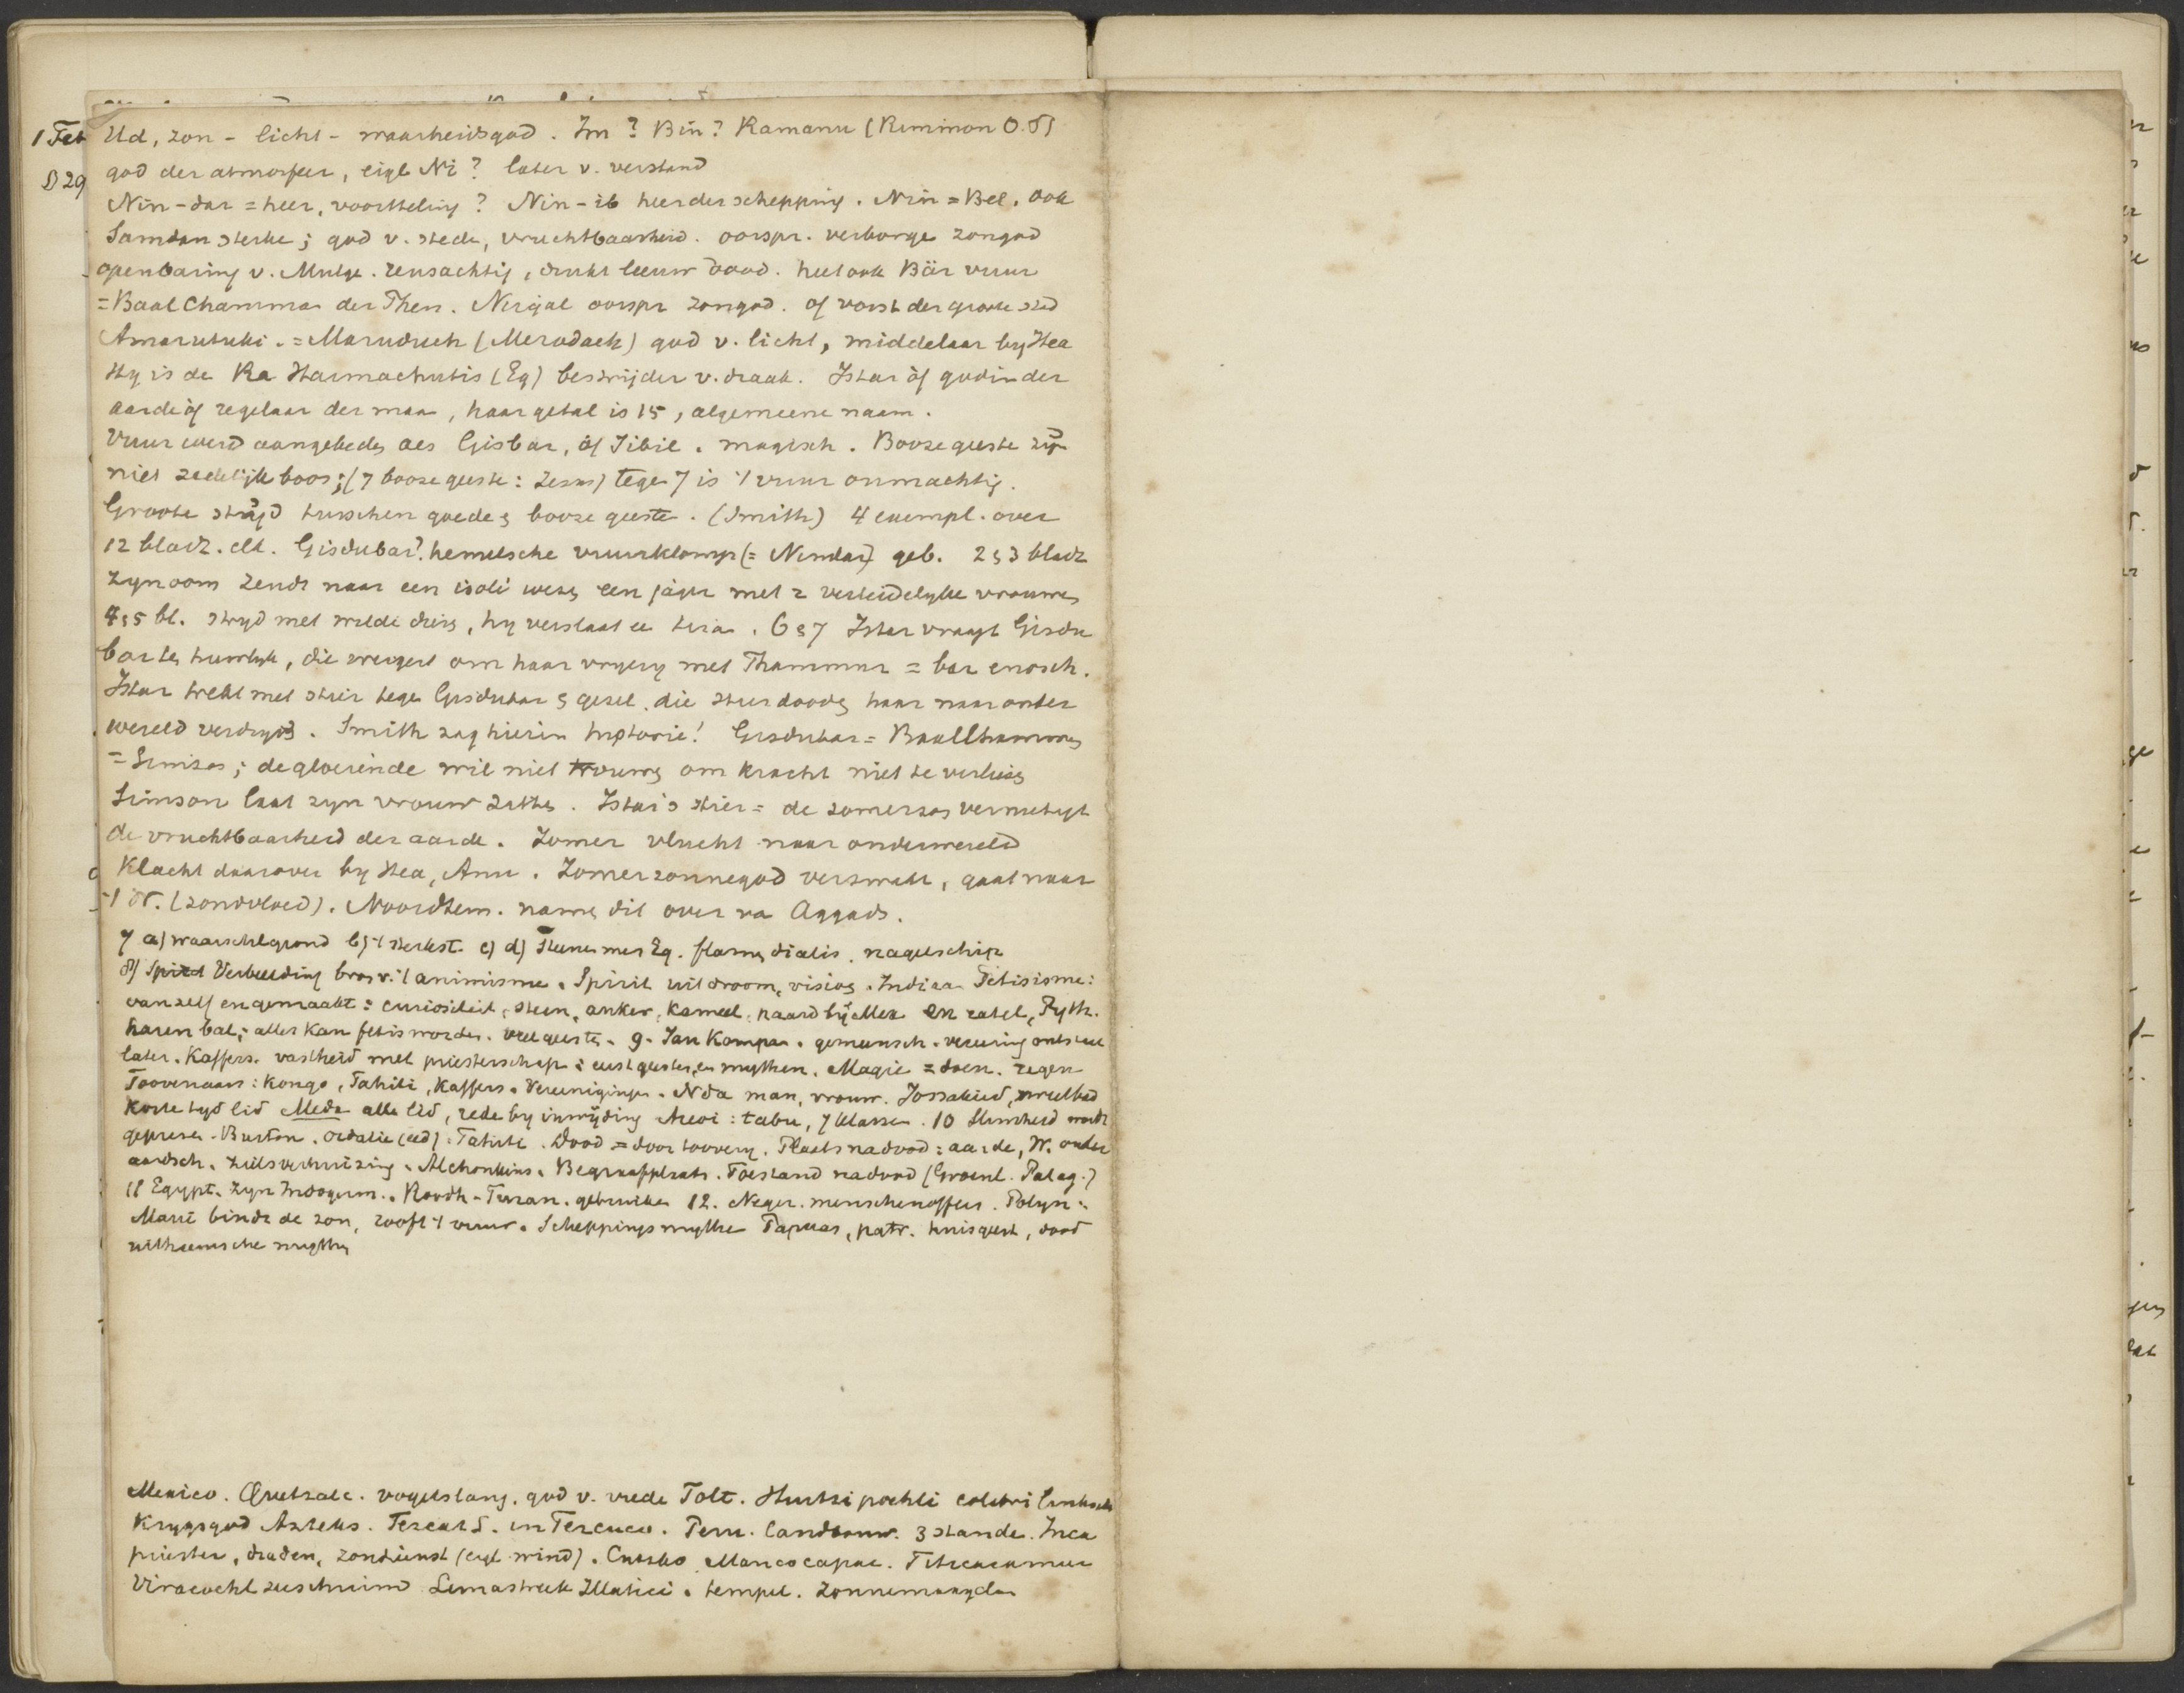 1 Feb Ud, zon - licht - waarheidsgod. Im? Bin? Ramanu (Rimmon O.T)
D 29 god der atmosfeer, eigl Ni? later v. verstand
Nin-dar = heer, voortteling? Nin-ib heer der schepping. Nin = Bel. ook
Samdan sterke; god v. stede, vruchtbaarheid. oorspr. verborge zongod
openbaring v. Mulge. reusachtig, drukt leeuw dood. heet ook Bär vuur
= Baal Chamman der Phen. Nirgal oorspr zongod. of vorst der groote stad
Amarutuki. = Maruduck (Merodach) god v. licht, middelaar by Hea
Hy is de Ra Harmachutis (Eg) bestrijder v. draak. Istar òf godin der
aarde òf regelaar der maan, haar getal is 15, algemeene naam.
Vuur werd aangebeden als Gisbar, òf Ibil. magisch. Booze geeste zijn
niet zedelijk boos; (7 booze geeste: ) tege 7 is 't vuur onmachtig.
Groote strijd tusschen goede & booze geeste. (Smith) 4 exempl. over
12 bladz. elk. Gisdubar? hemelsche vuurklomp (= Nindar) geb. 2 & 3 bladz
zyn oom zendt naar een wezen een jager met 2 verleidelyke vrouwen
4 & 5 bl. stryd met wilde dieren, hy verslaat ee . 6 & 7 Istar vraagt Gisdu
bar te huwlyk, die weigert om haar vryery met Thammuz = bar enosch.
Istar trekt met stier tege Gisdubar & gezel. die stier dooden haar naar onder
wereld verdryvd. Smith zag hierin historie! Gisdubar = Baal Chamman
= Simson; de gloeiende wil niet trouwen om kracht niet te verliezen
Simson laat zyn vrouw zitten. Istar's stier = de zomerzon vernietigt
de vruchtbaarheid der aarde. Zomer vlucht naar onderwereld
Klacht daarover by Hea, Anu. Zomerzonnegod verzwakt, gaat naar
't W. (zondvloed). Noordsem. namen dit over va Aggads.
7 a) waarschlgrond b) 't sterkst. c) d) Eg. flamen dialis. nagelschip
8) Verbeelding bron v. 't animisme. Spirit uit droom, visioen. Indiaan Fetisisme:
vanzelf en gemaakt: curiositeit, steen, anker, kameel, paard bij Mex en ratel, Pyth.
haren bal; alles kan fetis worden. veel geeste. 9. Jan Kompan. gemeensch. vereering ontstaat
later. Kaffers. vastheid met priesterschap: eerst geesten, en mythen. Magie = doen. regen
Toovenaars: Kongo, Tahiti, Kaffers. Vereeniginge. Nda man, vrouw. Jossakied, zweetbad
korte tyd lid Meda alle lid, rede by inwijding Areoi: tabu, 7 klassen. 10 Slimheid wordt
geprezen. Burton. ordalie (eed): Tahiti. Dood = door toovery. Plaats nadood: aarde, W. onder
aardsch. zielsverhuizing. Alchonkins. Begraafplaats. Toestand nadood (Groenl. Patag.)
11 Egypt. zyn Indogerm. Roodh-Turan. gebruiken 12. Neger. menschenoffers. Polyn:
Maui bindt de zon, rooft 't vuur. Scheppingsmythe Papuas, patr. huisgeest, dood
uitheemsche mythen
Mexico. Quetzalc. vogelslang. god v. vrede Tolt. Huitzi pochtli colibri links
Krygsgod Azteks. Tezcatl. in Tezcuco. Peru. landbouw. 3 stande. Inca
priester, draden, zondienst (eigl wind). Cuzko Mancocapac. Titicacameer
Viracocha zeeschuim Limastreek Illatici. tempel. zonnemaagden